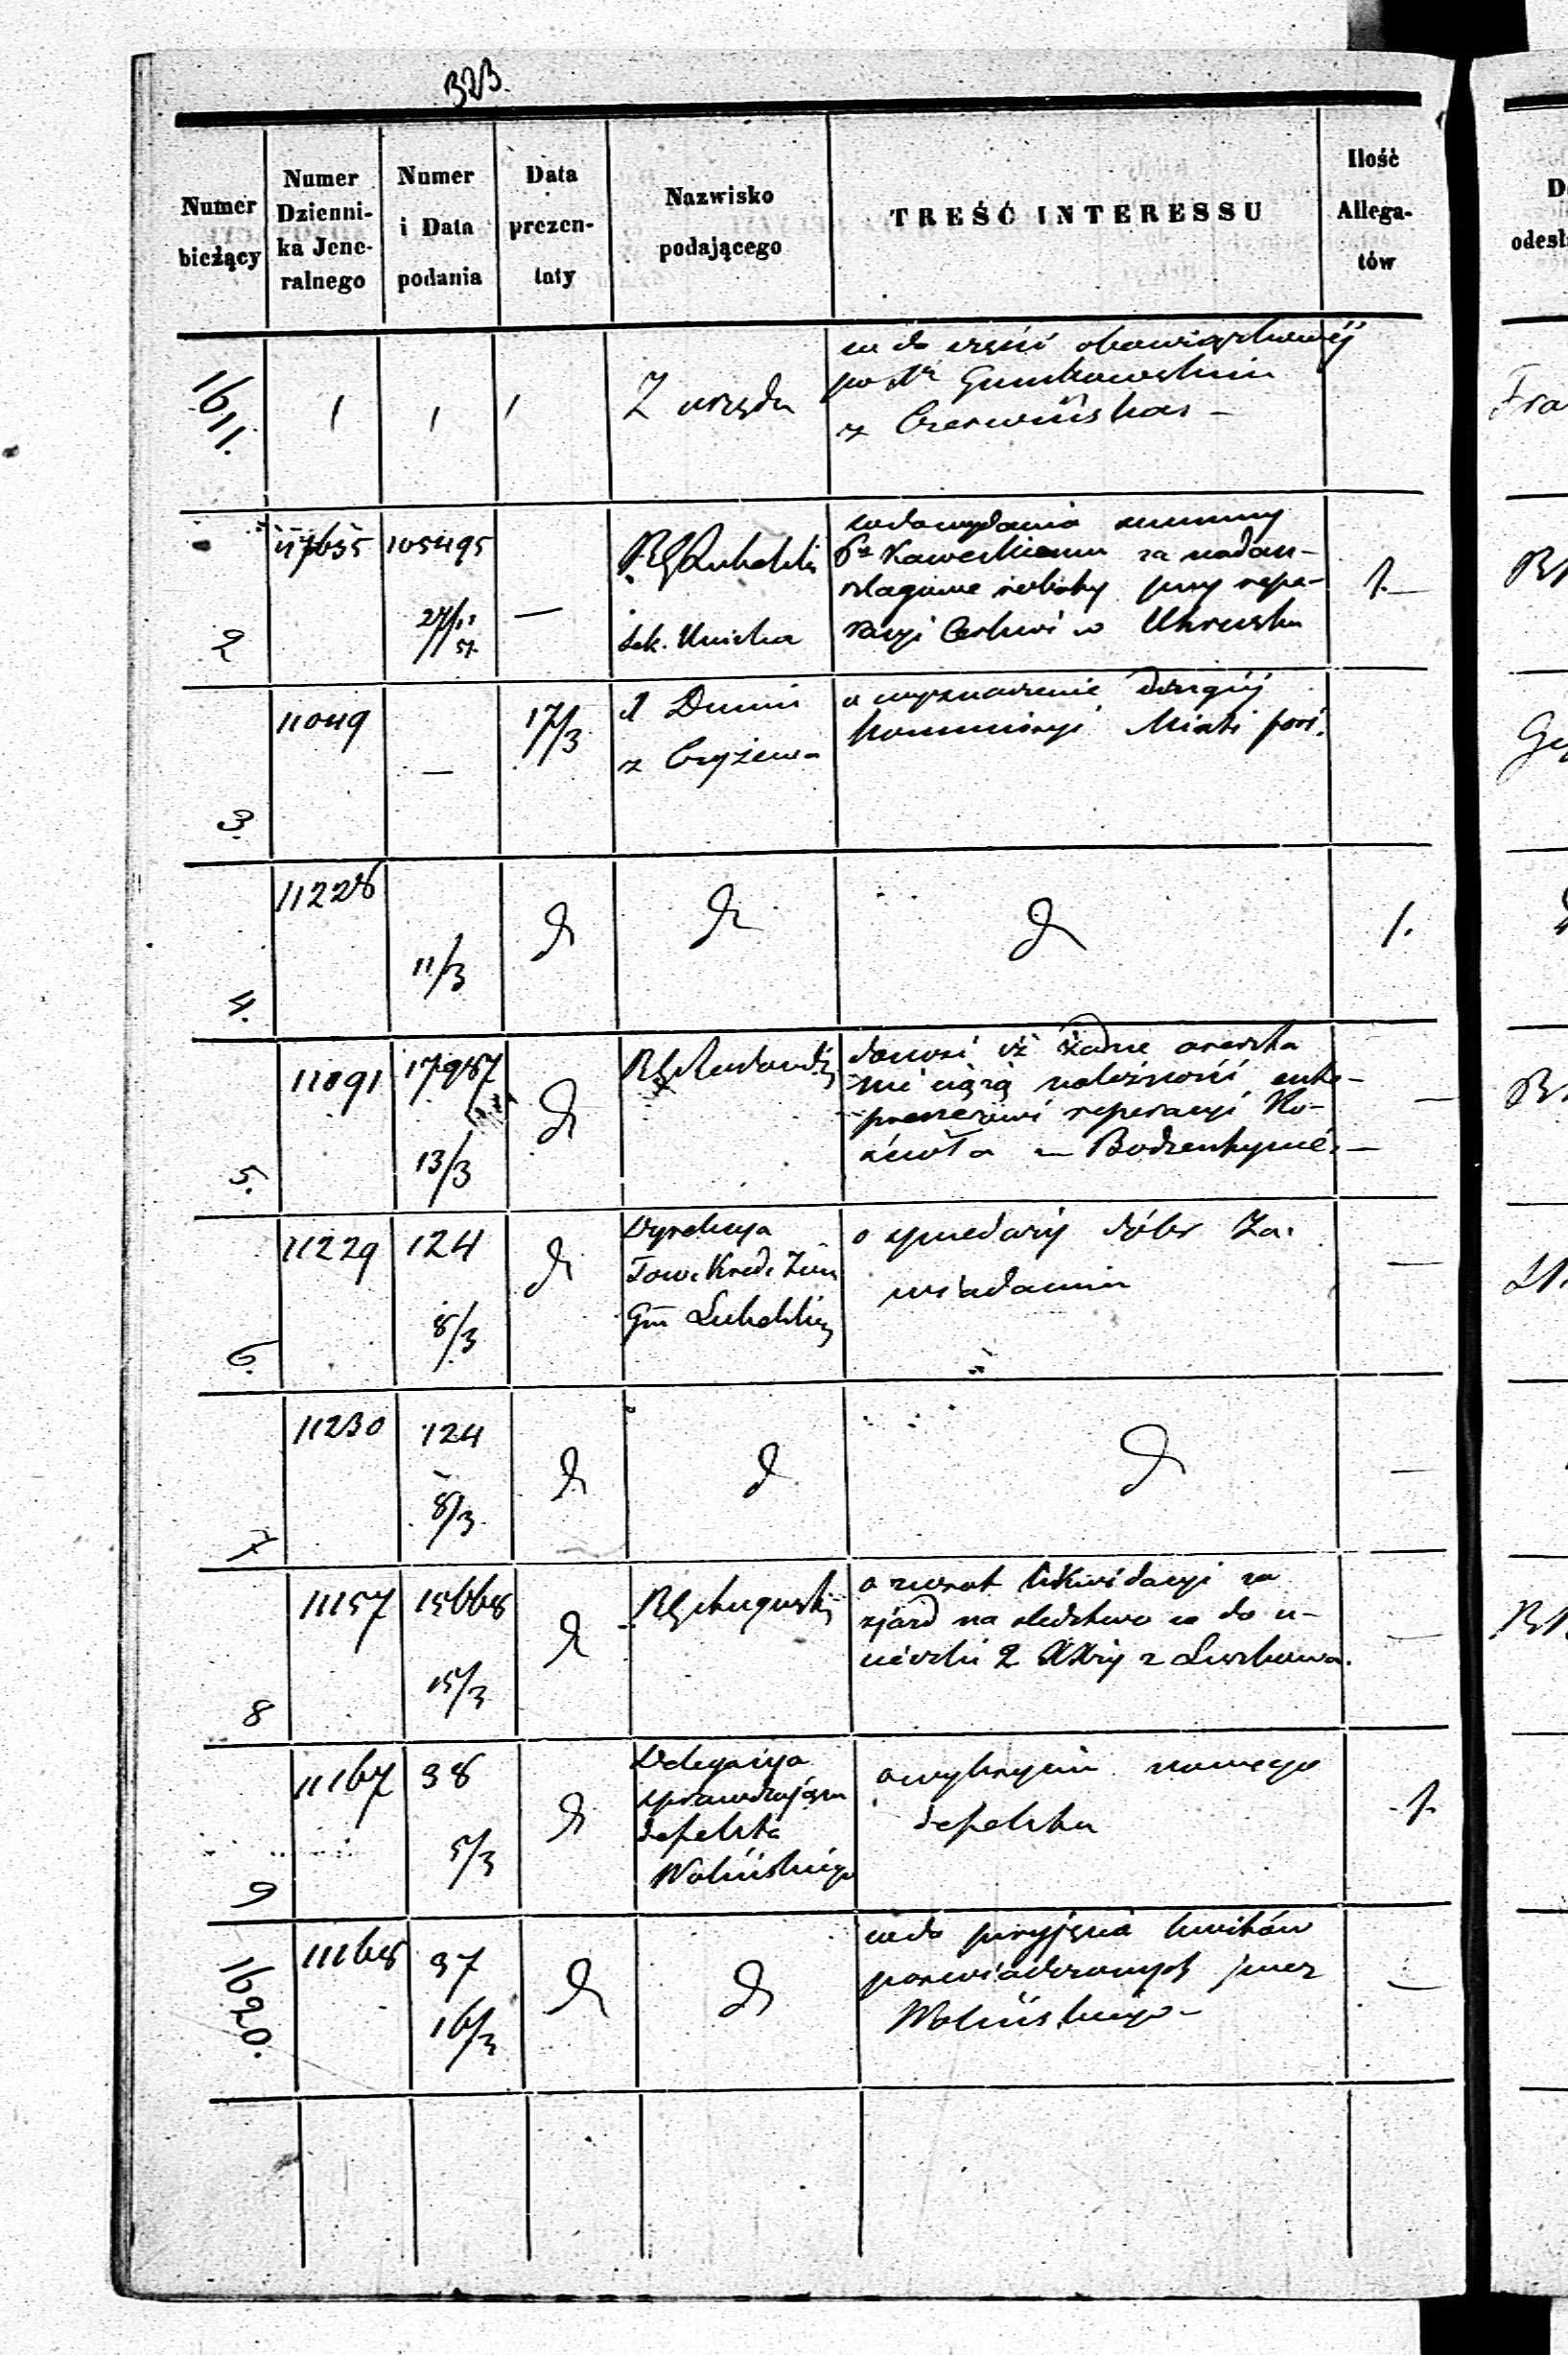 323.
Numer bieżący
Numer Dzienni-
ka Jene-
ralnego
Numer
i Data
podania
Data
prezen-
taty
Nazwisko
podającego
TREŚĆ INTERESSU
Ilość
Allega-
tów
1611.
Z urzędu
co do części obowiązkowej
po
z Czerwińska –
2
47635
105495
27/11
57.
R G Lubelski
sek. Unicka
co do wydania summy
Kaweckiemu za nadan-
szlagowe roboty przy repe-
racyi Cerkwi w Uhrusku
1. –
3.
11049
–
17/3
A Dunin
z Czyżewa
o wyznaczenie drugiej
kommissyi
4.
11228
11/3
do
do
do
1.
5.
11091
17987
13/3
do
R G Radomski
donosi iż żadne areszta
nie ciążą należności ente-
prenerowi reperacyi Ko-
ścioła w Bodzentynie. –
–
6.
11229
124
8/3
do
Dyrekcya
Tow. Kred. Ziem
Gm Lubelskiej
o sprzedaży dóbr Za-
wiadamia
–
7
11230
124
8/3
do
do
do
–
8
11157
15668
15/3
do
R G Augustows
o zwrot likwidacyi za
zjazd na śledztwo co do u-
cieczki 2 XXży z
–
9
11167
38
5/3
do
Delegacya
sprawdzająca
defekta
Wolińskiego
o wykryciu nowego
defektu
1.
1620.
11168
37
16/3
do
do
co do przyjęcia kwitów
poświadczonych przez
Wolińskiego –
–